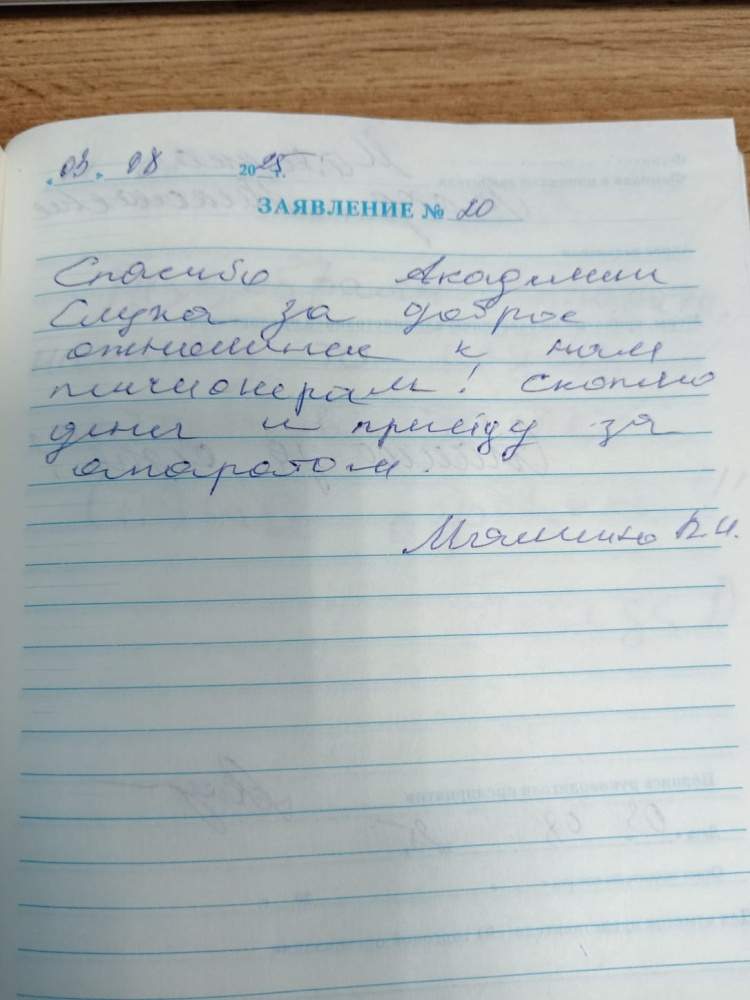 « 03 » 08 2025 г.
ЗАЯВЛЕНИЕ № 20
Спасибо Академии
Слуха за доброе
отношение к нам
пенсионерам! Скоплю
денег и приеду за
апаратом.
К.И.